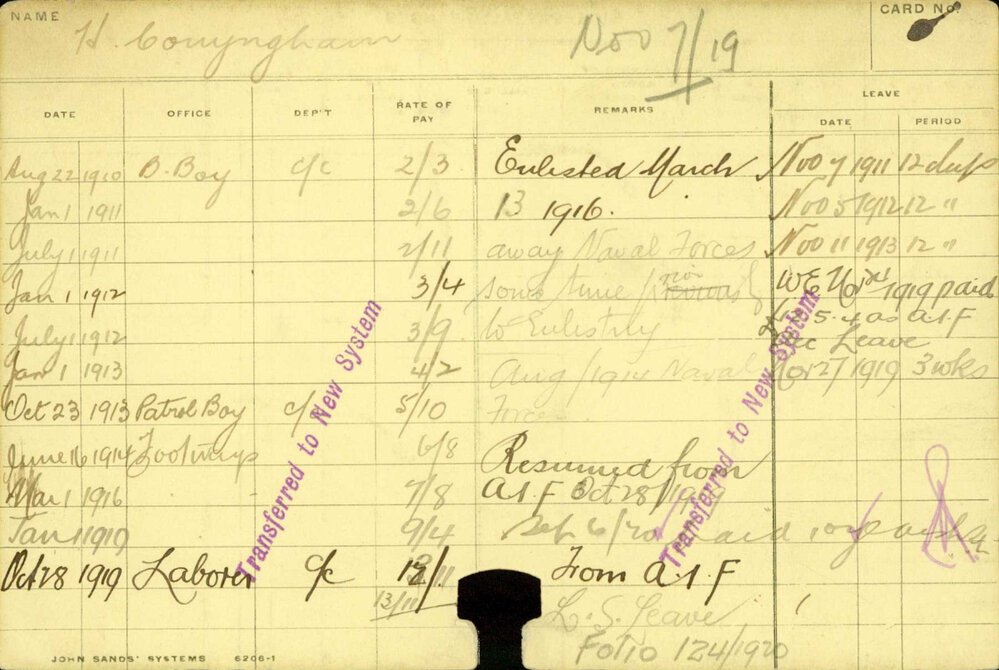 NAME H. Conyngham Nov 7/19 CARD No.
LEAVE
DATE OFFICE DEP'T RATE OF PAY REMARKS DATE PERIOD
Aug 22 1910 B. Boy c/c 2/3 Enlisted March Nov 7 1911 12 days
Jan 1 1911 2/6 13 1916. Nov 5 1912 12 "
July 1 1911 2/11 away Naval Forces Nov 11 1913 12 "
Jan 1 1912 3/4 some time previously W.E. 1919 paid
July 1 1912 3/9 to Enlisting 5.4 as A.I.F
Leave
Jan 1 1913 4/2 Aug/1914 Naval Nov 27 1919 3 wks
Oct 23 1913 Patrol Boy c/c 5/10 Forces
June 16 1914 Footways 6/8 Resumed from
Mar 1 1916 7/8 A.I.F Oct 28/1919
Jan 1 1919 9/4 Sep 6/20 paid
Oct 28 1919 Laborer c/c From A.I.F
13/11 L. S. Leave
Folio 124/1920
Transferred to New System
Transferred to New System
JOHN SANDS' SYSTEMS 6206-1